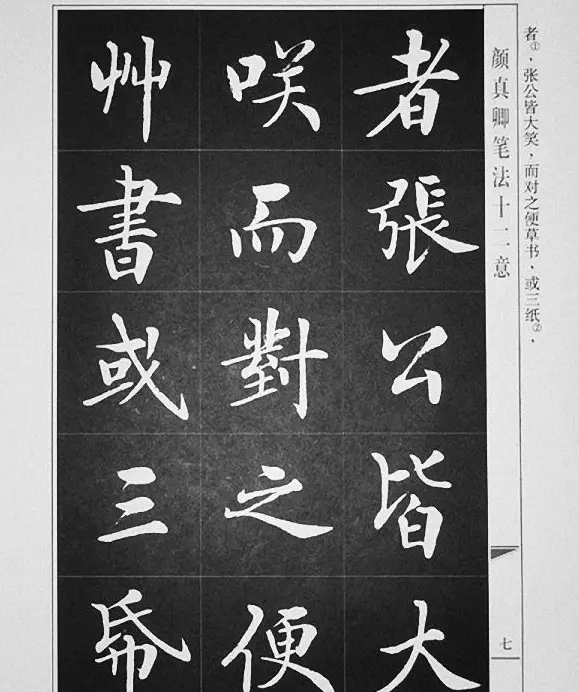 者①，张公皆大笑，而对之便草书，或三纸②，
颜真卿笔法十二意
七
者張公皆大
咲而對之便
艸書或三帋